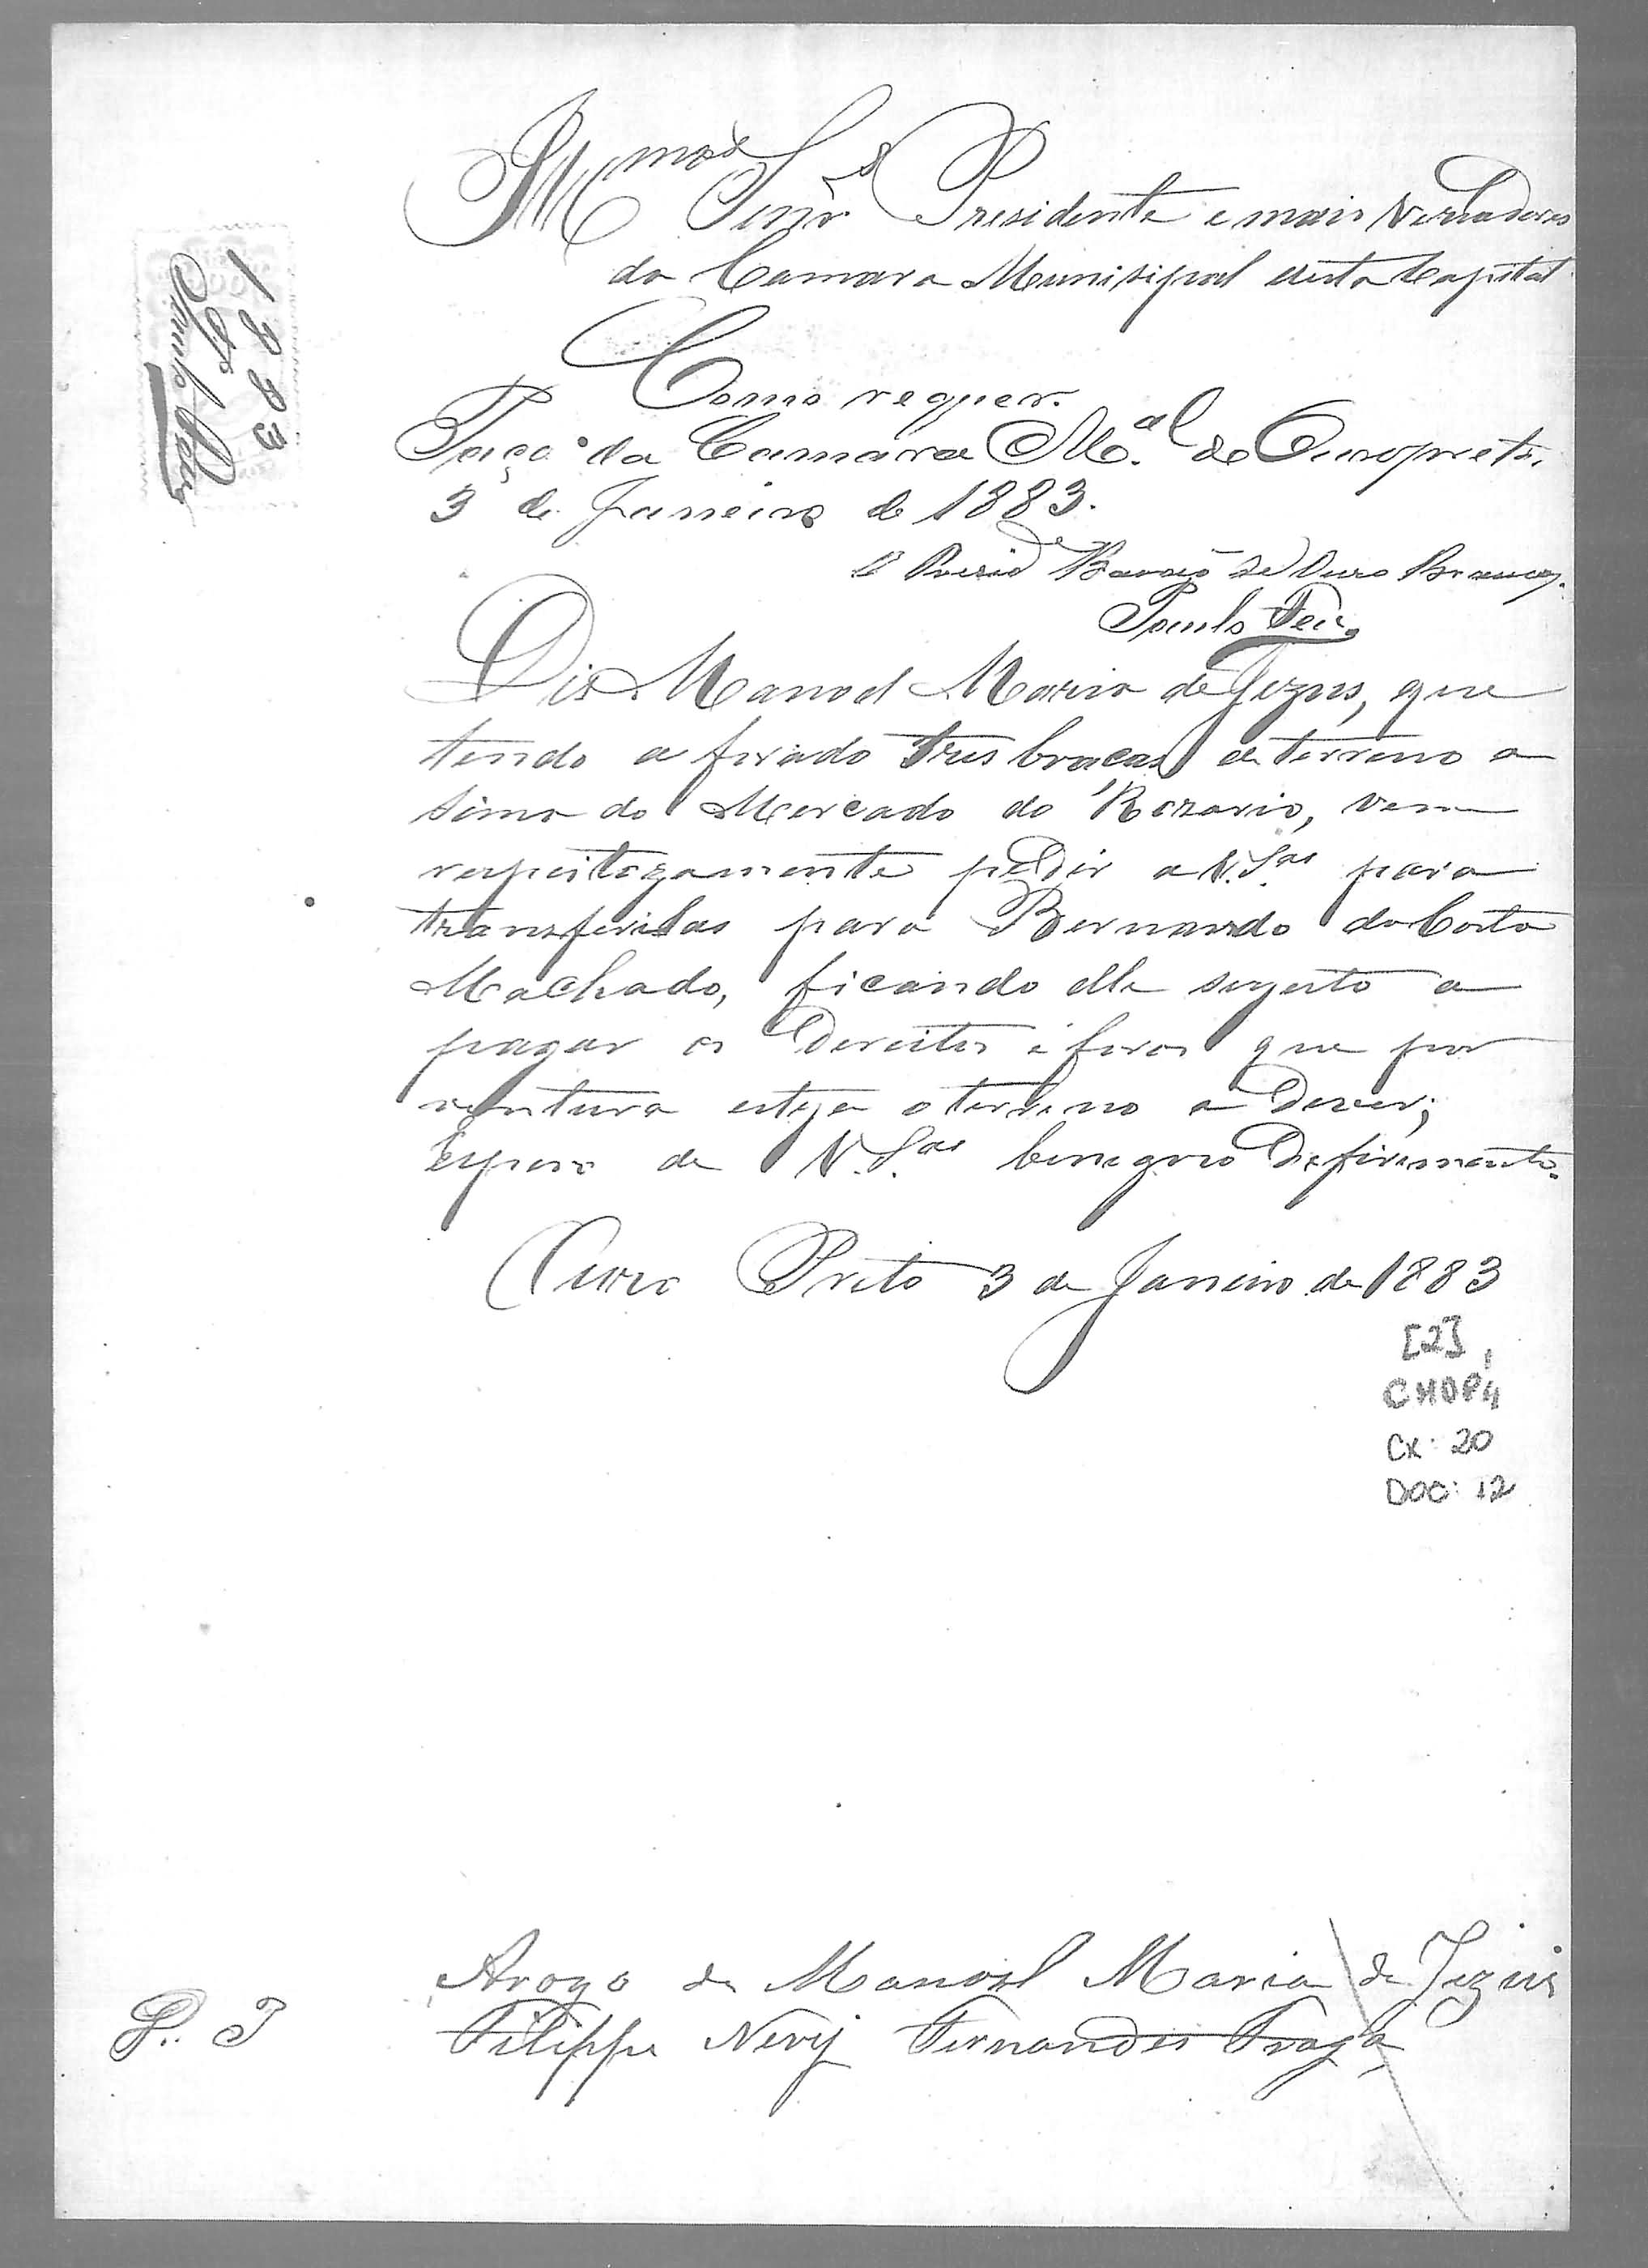 Ill.mos Senr.s Presidente e mais Veriadores
da Camara Munisipal desta Capital
Como requer.
Paço da Camara M.al de Ouropreto,
3 de Janeiro de 1883.
O Presid.e Barão de Ouro Branco.
Paulo
Dis Manoel Maria de Jezus, que
tendo a forado tres braças de terreno a
sima do Mercado do Rozario, vem
respeitozamente pedir a V. S.as para
transferilas para Bernardo da Costa
Machado, ficando elle sugeito a
pagar os Dereitos e foros que por
ventura esteja o terreno a Dever;
Espera de V. S.as benigno Defirimento.
Ouro Preto 3 de Janeiro de 1883
[2]
CMOP
Cx: 20
DOC: 12
Arogo de Manoel Maria de Jezus
Filippe Nery Fernandes Braga
P. J
1883